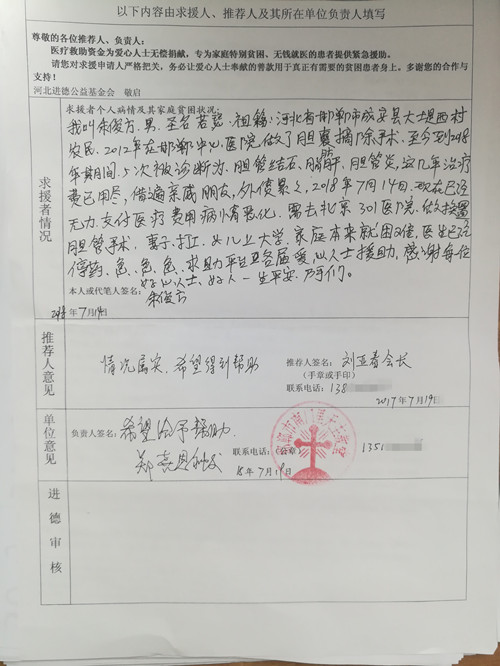 以下内容由求援人、推荐人及其所在单位负责人填写
尊敬的各位推荐人、负责人:
医疗救助资金为爱心人士无偿捐献,专为家庭特别贫困、无钱就医的患者提供紧急援助。
请您对求援申请人严格把关,务必让爱心人士奉献的善款用于真正有需要的贫困患者身上。多谢您的合作与
支持!
河北进德公益基金会 敬启
求援者情况
求援者个人病情及其家庭贫困状况:
我叫朱俊方,男,圣名若瑟,祖籍:河北省邯郸市成安县大
村
农民,2012年在邯郸中心医院做了胆囊摘除手术,至今到2018
年其期间5次被诊断为,胆管结石,胆管炎,这几年治疗
费已用尽,借遍亲戚朋友,外债累累,2018年7月14日,现在已经
无力支付医疗费用病情恶化,需去北京301医院,做
胆管手术,妻子打工,女儿上大学,家庭本来就困难,医生已经
停药,急、急、急,求助平台及各届爱心人士援助,感谢每位
好心人士,好人一生平安
本人或代笔人签名:
朱俊方
2018年7月19日
推荐人意见
情况属实,希望得到帮助
推荐人签名:刘亚春会长
(手章或手印)
联系电话:138
2017年7月19日
单位意见
负责人签名:希望给予帮助.
联系电话:(公章) 1351
18年7月19日
进德审核